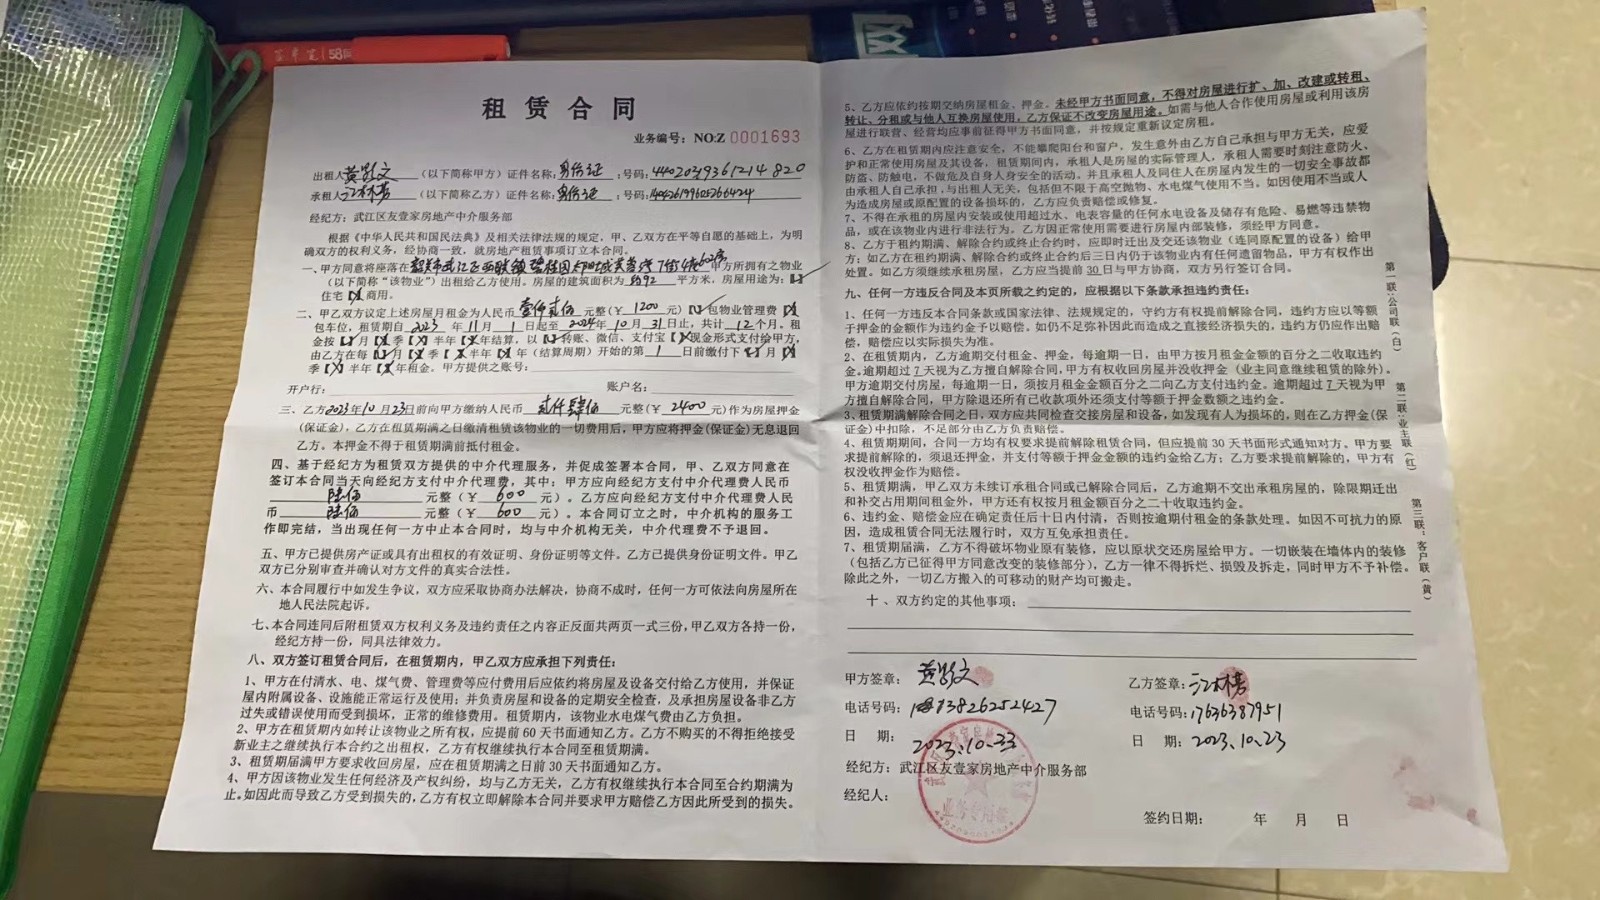 租赁合同
业务编号：NO:Z 0001693
出租人 （以下简称甲方）证件名称：身份证 ：号码：
承租人 （以下简称乙方）证件名称：身份证 ：号码：
经纪方：武江区友壹家房地产中介服务部
根据《中华人民共和国民法典》及相关法律法规的规定，甲、乙双方在平等自愿的基础上，为明
确双方的权利义务，经协商一致，就房地产租赁事项订立本合同。
一、甲方同意将座落在 甲方所拥有之物业
（以下简称“该物业”）出租给乙方使用。房屋的建筑面积为 约92 平方米，房屋用途为：【✓】
住宅【X】商用。
二、甲乙双方议定上述房屋月租金为人民币 壹仟贰佰 元整（￥ 1200 元）【✓】包物业管理费【X】
包车位，租赁期自 2023 年 11 月 1 日起至 2024 年 10 月 31 日止，共计 12 个月。租
金按【✓】月【X】季【X】半年【X】年结算，以【✓】转账、微信、支付宝【X】现金形式支付给甲方，
由乙方在每【✓】月【X】季【X】半年【X】年（结算周期）开始的第 1 日前缴付下【✓】月【X】
季【X】半年【X】年租金。甲方提供之账号：
开户行： 账户名：
三、乙方2023年10月23日前向甲方缴纳人民币 贰仟肆佰 元整（￥ 2400 元）作为房屋押金
（保证金），乙方在租赁期满之日缴清租赁该物业的一切费用后，甲方应将押金（保证金）无息退回
乙方。本押金不得于租赁期满前抵付租金。
四、基于经纪方为租赁双方提供的中介代理服务，并促成签署本合同，甲、乙双方同意在
签订本合同当天向经纪方支付中介代理费，其中：甲方应向经纪方支付中介代理费人民币
陆佰 元整（￥ 600 元）。乙方应向经纪方支付中介代理费人民
币 陆佰 元整（￥ 600 元）。本合同订立之时，中介机构的服务工
作即完结，当出现任何一方中止本合同时，均与中介机构无关，中介代理费不予退回。
五、甲方已提供房产证或具有出租权的有效证明、身份证明等文件。乙方已提供身份证明文件。甲乙
双方已分别审查并确认对方文件的真实合法性。
六、本合同履行中如发生争议，双方应采取协商办法解决，协商不成时，任何一方可依法向房屋所在
地人民法院起诉。
七、本合同连同后附租赁双方权利义务及违约责任之内容正反面共两页一式三份，甲乙双方各持一份，
经纪方持一份，同具法律效力。
八、双方签订租赁合同后，在租赁期内，甲乙双方应承担下列责任：
1、甲方在付清水、电、煤气费、管理费等应付费用后应依约将房屋及设备交付给乙方使用，并保证
屋内附属设备、设施能正常运行及使用；并负责房屋和设备的定期安全检查，及承担房屋设备非乙方
过失或错误使用而受到损坏，正常的维修费用。租赁期内，该物业水电煤气费由乙方负担。
2、甲方在租赁期内如转让该物业之所有权，应提前60天书面通知乙方。乙方不购买的不得拒绝接受
新业主之继续执行本合约之出租权，乙方有权继续执行本合同至租赁期满。
3、租赁期届满甲方要求收回房屋，应在租赁期满之日前30天书面通知乙方。
4、甲方因该物业发生任何经济及产权纠纷，均与乙方无关，乙方有权继续执行本合同至合约期满为
止。如因此而导致乙方受到损失的，乙方有权立即解除本合同并要求甲方赔偿乙方因此所受到的损失。
5、乙方应依约按期交纳房屋租金、押金。未经甲方书面同意，不得对房屋进行扩、加、改建或转租、
转让、分租或与他人互换房屋使用，乙方保证不改变房屋用途。如需与他人合作使用房屋或利用该房
屋进行联营、经营均应事前征得甲方书面同意，并按规定重新议定房租。
6、乙方在租赁期内应注意安全，不能攀爬阳台和窗户，发生意外由乙方自己承担与甲方无关，应爱
护和正常使用房屋及其设备，租赁期间内，承租人是房屋的实际管理人，承租人需要时刻注意防火、
防盗、防触电，不做危及自身人身安全的活动。并且承租人及同住人在房屋内发生的一切安全事故都
由承租人自己承担，与出租人无关，包括但不限于高空抛物、水电煤气使用不当。如因使用不当或人
为造成房屋或原配置的设备损坏的，乙方应负责赔偿或修复。
7、不得在承租的房屋内安装或使用超过水、电表容量的任何水电设备及储存有危险、易燃等违禁物
品，或在该物业内进行非法行为。乙方因正常使用需要进行房屋内部装修，须经甲方同意。
8、乙方于租约期满、解除合约或终止合约时，应即时迁出及交还该物业（连同原配置的设备）给甲
方；如乙方在租约期满、解除合约或终止合约后三日内仍于该物业内有任何遗留物品，甲方有权作出
处置。如乙方须继续承租房屋，乙方应当提前30日与甲方协商，双方另行签订合同。
九、任何一方违反合同及本页所载之约定的，应根据以下条款承担违约责任：
1、任何一方违反本合同条款或国家法律、法规规定的，守约方有权提前解除合同，违约方应以等额
于押金的金额作为违约金予以赔偿。如仍不足弥补因此而造成之直接经济损失的，违约方仍应作出赔
偿，赔偿应以实际损失为准。
2、在租赁期内，乙方逾期交付租金、押金，每逾期一日，由甲方按月租金金额的百分之二收取违约
金。逾期超过7天视为乙方擅自解除合同，甲方有权收回房屋并没收押金（业主同意继续租赁的除外）。
甲方逾期交付房屋，每逾期一日，须按月租金金额百分之二向乙方支付违约金。逾期超过7天视为甲
方擅自解除合同，甲方除退还所有已收款项外还须支付等额于押金数额之违约金。
3、租赁期满解除合同之日，双方应共同检查交接房屋和设备，如发现有人为损坏的，则在乙方押金（保
证金）中扣除，不足部分由乙方负责赔偿。
4、租赁期期间，合同一方均有权要求提前解除租赁合同，但应提前30天书面形式通知对方。甲方要
求提前解除的，须退还押金，并支付等额于押金金额的违约金给乙方；乙方要求提前解除的，甲方有
权没收押金作为赔偿。
5、租赁期满，甲乙方未续订承租合同或已解除合同后，乙方逾期不交出承租房屋的，除限期迁出
和补交占用期间租金外，甲方还有权按月租金额百分之二十收取违约金。
6、违约金、赔偿金应在确定责任后十日内付清，否则按逾期付租金的条款处理。如因不可抗力的原
因，造成租赁合同无法履行时，双方互免承担责任。
7、租赁期届满，乙方不得破坏物业原有装修，应以原状交还房屋给甲方。一切嵌装在墙体内的装修
（包括乙方已征得甲方同意改变的装修部分），乙方一律不得拆烂、损毁及拆走，同时甲方不予补偿。
除此之外，一切乙方搬入的可移动的财产均可搬走。
十、双方约定的其他事项：
甲方签章：
电话号码：13826252427
日 期：2023.10.23
经纪方：武江区友壹家房地产中介服务部
经纪人：
乙方签章：
电话号码：17636387951
日 期：2023.10.23
签约日期： 年 月 日
第一联：公司联（白）
第二联：业主联（红）
第三联：客户联（黄）
业务专用章